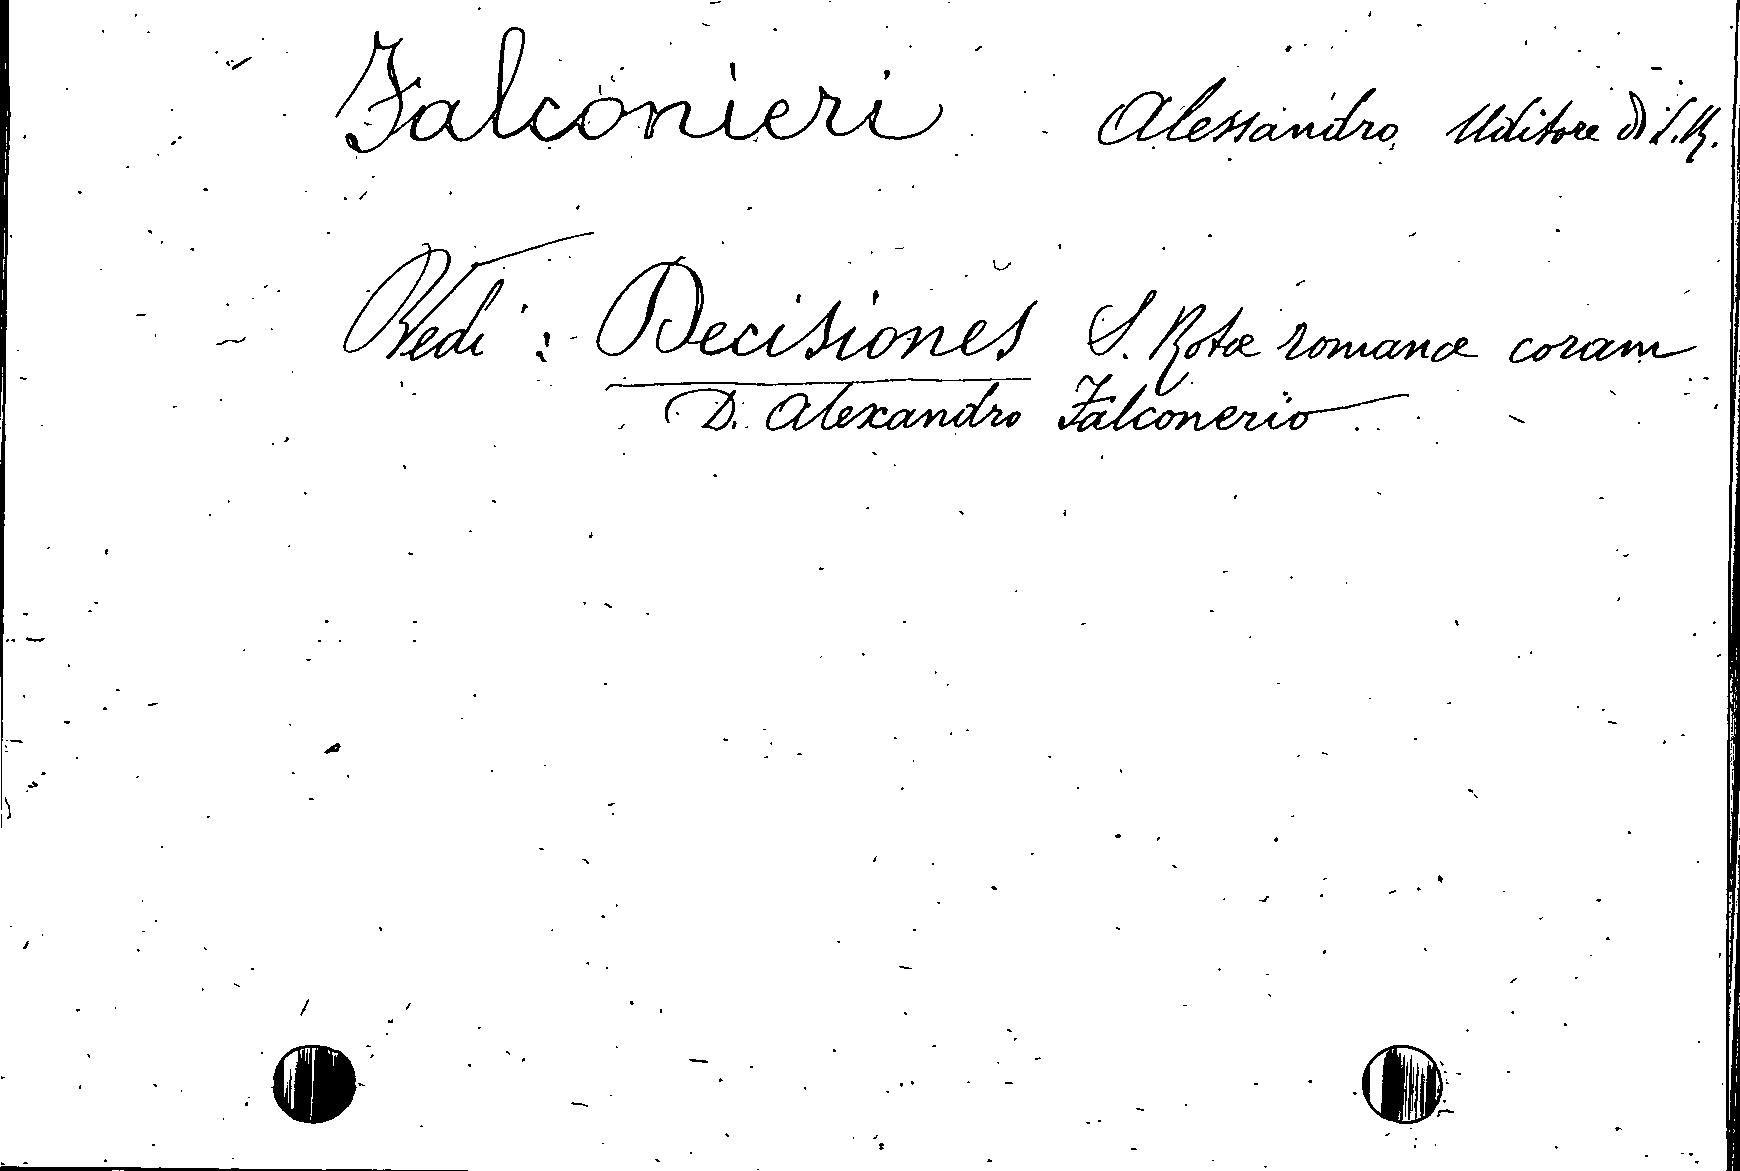 Falconieri Alessandro, Uditore di S. R.
Vedi: Decisiones S. Rotæ romanæ coram
D. Alexandro Falconerio